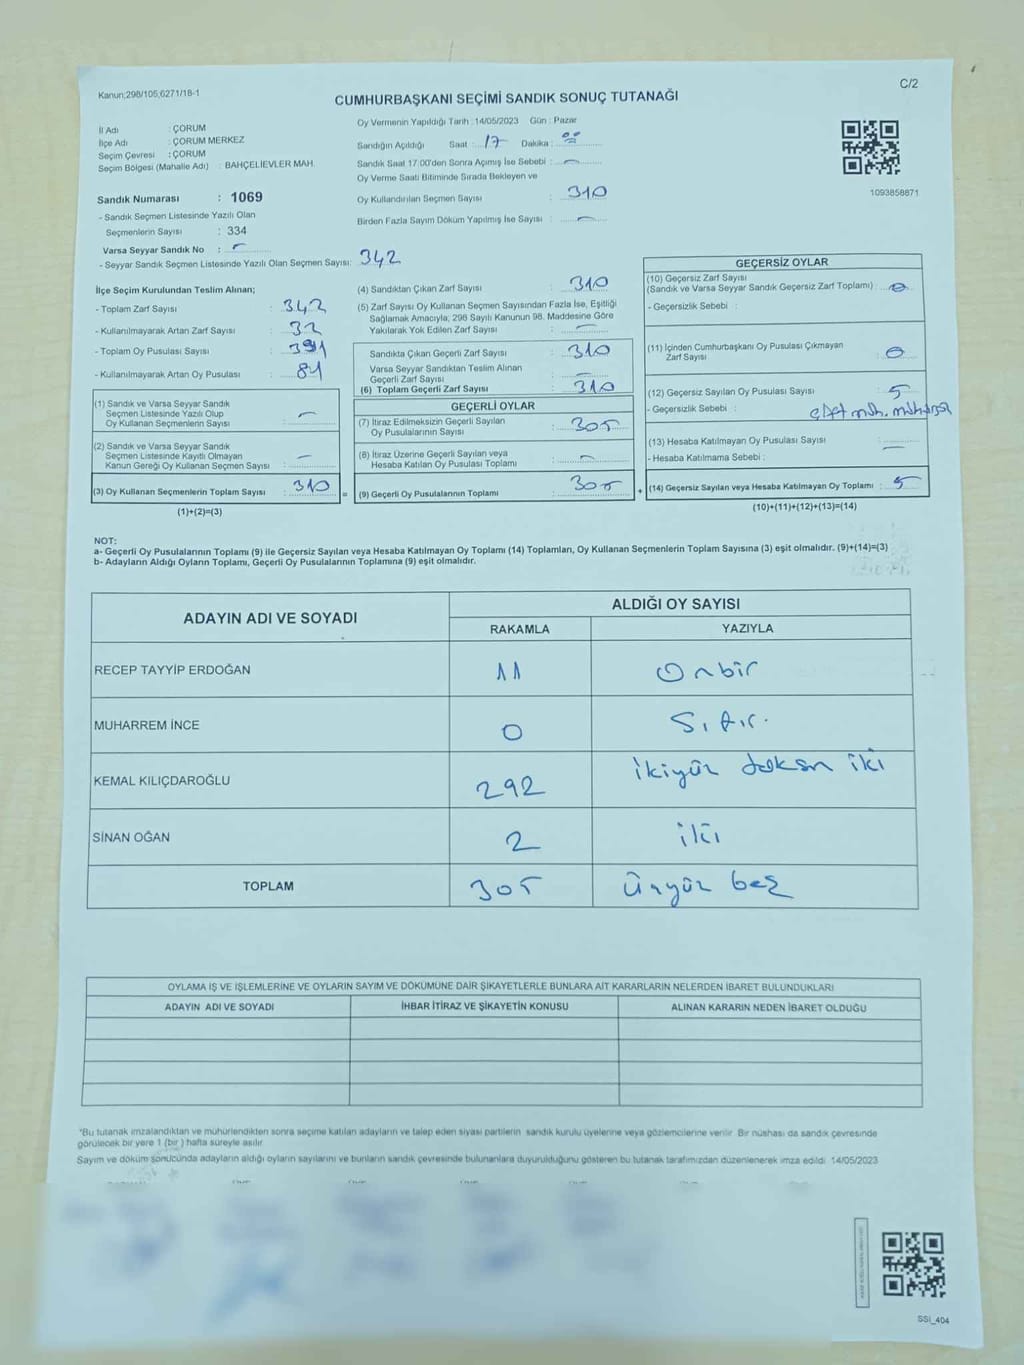 Kanun;298/105;6271/18-1
C/2
CUMHURBAŞKANI SEÇİMİ SANDIK SONUÇ TUTANAĞI
İl Adı : ÇORUM
İlçe Adı : ÇORUM MERKEZ
Seçim Çevresi : ÇORUM
Seçim Bölgesi (Mahalle Adı) : BAHÇELİEVLER MAH.
Oy Vermenin Yapıldığı Tarih : 14/05/2023 Gün : Pazar
Sandığın Açıldığı Saat : 17 Dakika : 00
Sandık Saat 17:00'den Sonra Açımış İse Sebebi : -
Oy Verme Saati Bitiminde Sırada Bekleyen ve
Oy Kullandırılan Seçmen Sayısı : 310
Birden Fazla Sayım Döküm Yapılmış İse Sayısı : -
1093858871
Sandık Numarası : 1069
- Sandık Seçmen Listesinde Yazılı Olan
Seçmenlerin Sayısı : 334
Varsa Seyyar Sandık No : -
- Seyyar Sandık Seçmen Listesinde Yazılı Olan Seçmen Sayısı: 342
İlçe Seçim Kurulundan Teslim Alınan;
- Toplam Zarf Sayısı : 342
- Kullanılmayarak Artan Zarf Sayısı : 32
- Toplam Oy Pusulası Sayısı : 391
- Kullanılmayarak Artan Oy Pusulası : 81
(1) Sandık ve Varsa Seyyar Sandık
Seçmen Listesinde Yazılı Olup
Oy Kullanan Seçmenlerin Sayısı : -
(2) Sandık ve Varsa Seyyar Sandık
Seçmen Listesinde Kayıtlı Olmayan
Kanun Gereği Oy Kullanan Seçmen Sayısı : -
(3) Oy Kullanan Seçmenlerin Toplam Sayısı : 310 =
(1)+(2)=(3)
(4) Sandıktan Çıkan Zarf Sayısı : 310
(5) Zarf Sayısı Oy Kullanan Seçmen Sayısından Fazla İse, Eşitliği
Sağlamak Amacıyla; 298 Sayılı Kanunun 98. Maddesine Göre
Yakılarak Yok Edilen Zarf Sayısı : -
Sandıkta Çıkan Geçerli Zarf Sayısı : 310
Varsa Seyyar Sandıktan Teslim Alınan
Geçerli Zarf Sayısı : -
(6) Toplam Geçerli Zarf Sayısı : 310
GEÇERLİ OYLAR
(7) İtiraz Edilmeksizin Geçerli Sayılan
Oy Pusulalarının Sayısı : 305
(8) İtiraz Üzerine Geçerli Sayılan veya
Hesaba Katılan Oy Pusulası Toplamı : -
(9) Geçerli Oy Pusulalarının Toplamı : 305 +
GEÇERSİZ OYLAR
(10) Geçersiz Zarf Sayısı
(Sandık ve Varsa Seyyar Sandık Geçersiz Zarf Toplamı) : 0
- Geçersizlik Sebebi :
(11) İçinden Cumhurbaşkanı Oy Pusulası Çıkmayan
Zarf Sayısı : 0
(12) Geçersiz Sayılan Oy Pusulası Sayısı : 5
- Geçersizlik Sebebi :
(13) Hesaba Katılmayan Oy Pusulası Sayısı : -
- Hesaba Katılmama Sebebi :
(14) Geçersiz Sayılan veya Hesaba Katılmayan Oy Toplamı : 5
(10)+(11)+(12)+(13)=(14)
NOT:
a- Geçerli Oy Pusulalarının Toplamı (9) ile Geçersiz Sayılan veya Hesaba Katılmayan Oy Toplamı (14) Toplamları, Oy Kullanan Seçmenlerin Toplam Sayısına (3) eşit olmalıdır. (9)+(14)=(3)
b- Adayların Aldığı Oyların Toplamı, Geçerli Oy Pusulalarının Toplamına (9) eşit olmalıdır.
ADAYIN ADI VE SOYADI
ALDIĞI OY SAYISI
RAKAMLA YAZIYLA
RECEP TAYYİP ERDOĞAN 11 Onbir
MUHARREM İNCE 0 Sıfır.
KEMAL KILIÇDAROĞLU 292 ikiyüz doksan iki
SİNAN OĞAN 2 iki
TOPLAM 305 üçyüz beş
OYLAMA İŞ VE İŞLEMLERİNE VE OYLARIN SAYIM VE DÖKÜMÜNE DAİR ŞİKAYETLERLE BUNLARA AİT KARARLARIN NELERDEN İBARET BULUNDUKLARI
ADAYIN ADI VE SOYADI İHBAR İTİRAZ VE ŞİKAYETİN KONUSU ALINAN KARARIN NEDEN İBARET OLDUĞU
*Bu tutanak imzalandıktan ve mühürlendikten sonra seçime katılan adayların ve talep eden siyasi partilerin sandık kurulu üyelerine veya gözlemcilerine verilir. Bir nüshası da sandık çevresinde
görülecek bir yere 1 (bir) hafta süreyle asılır.
Sayım ve döküm sonucunda adayların aldığı oyların sayılarını ve bunların sandık çevresinde bulunanlara duyurulduğunu gösteren bu tutanak tarafımızdan düzenlenerek imza edildi. 14/05/2023
SSI_404